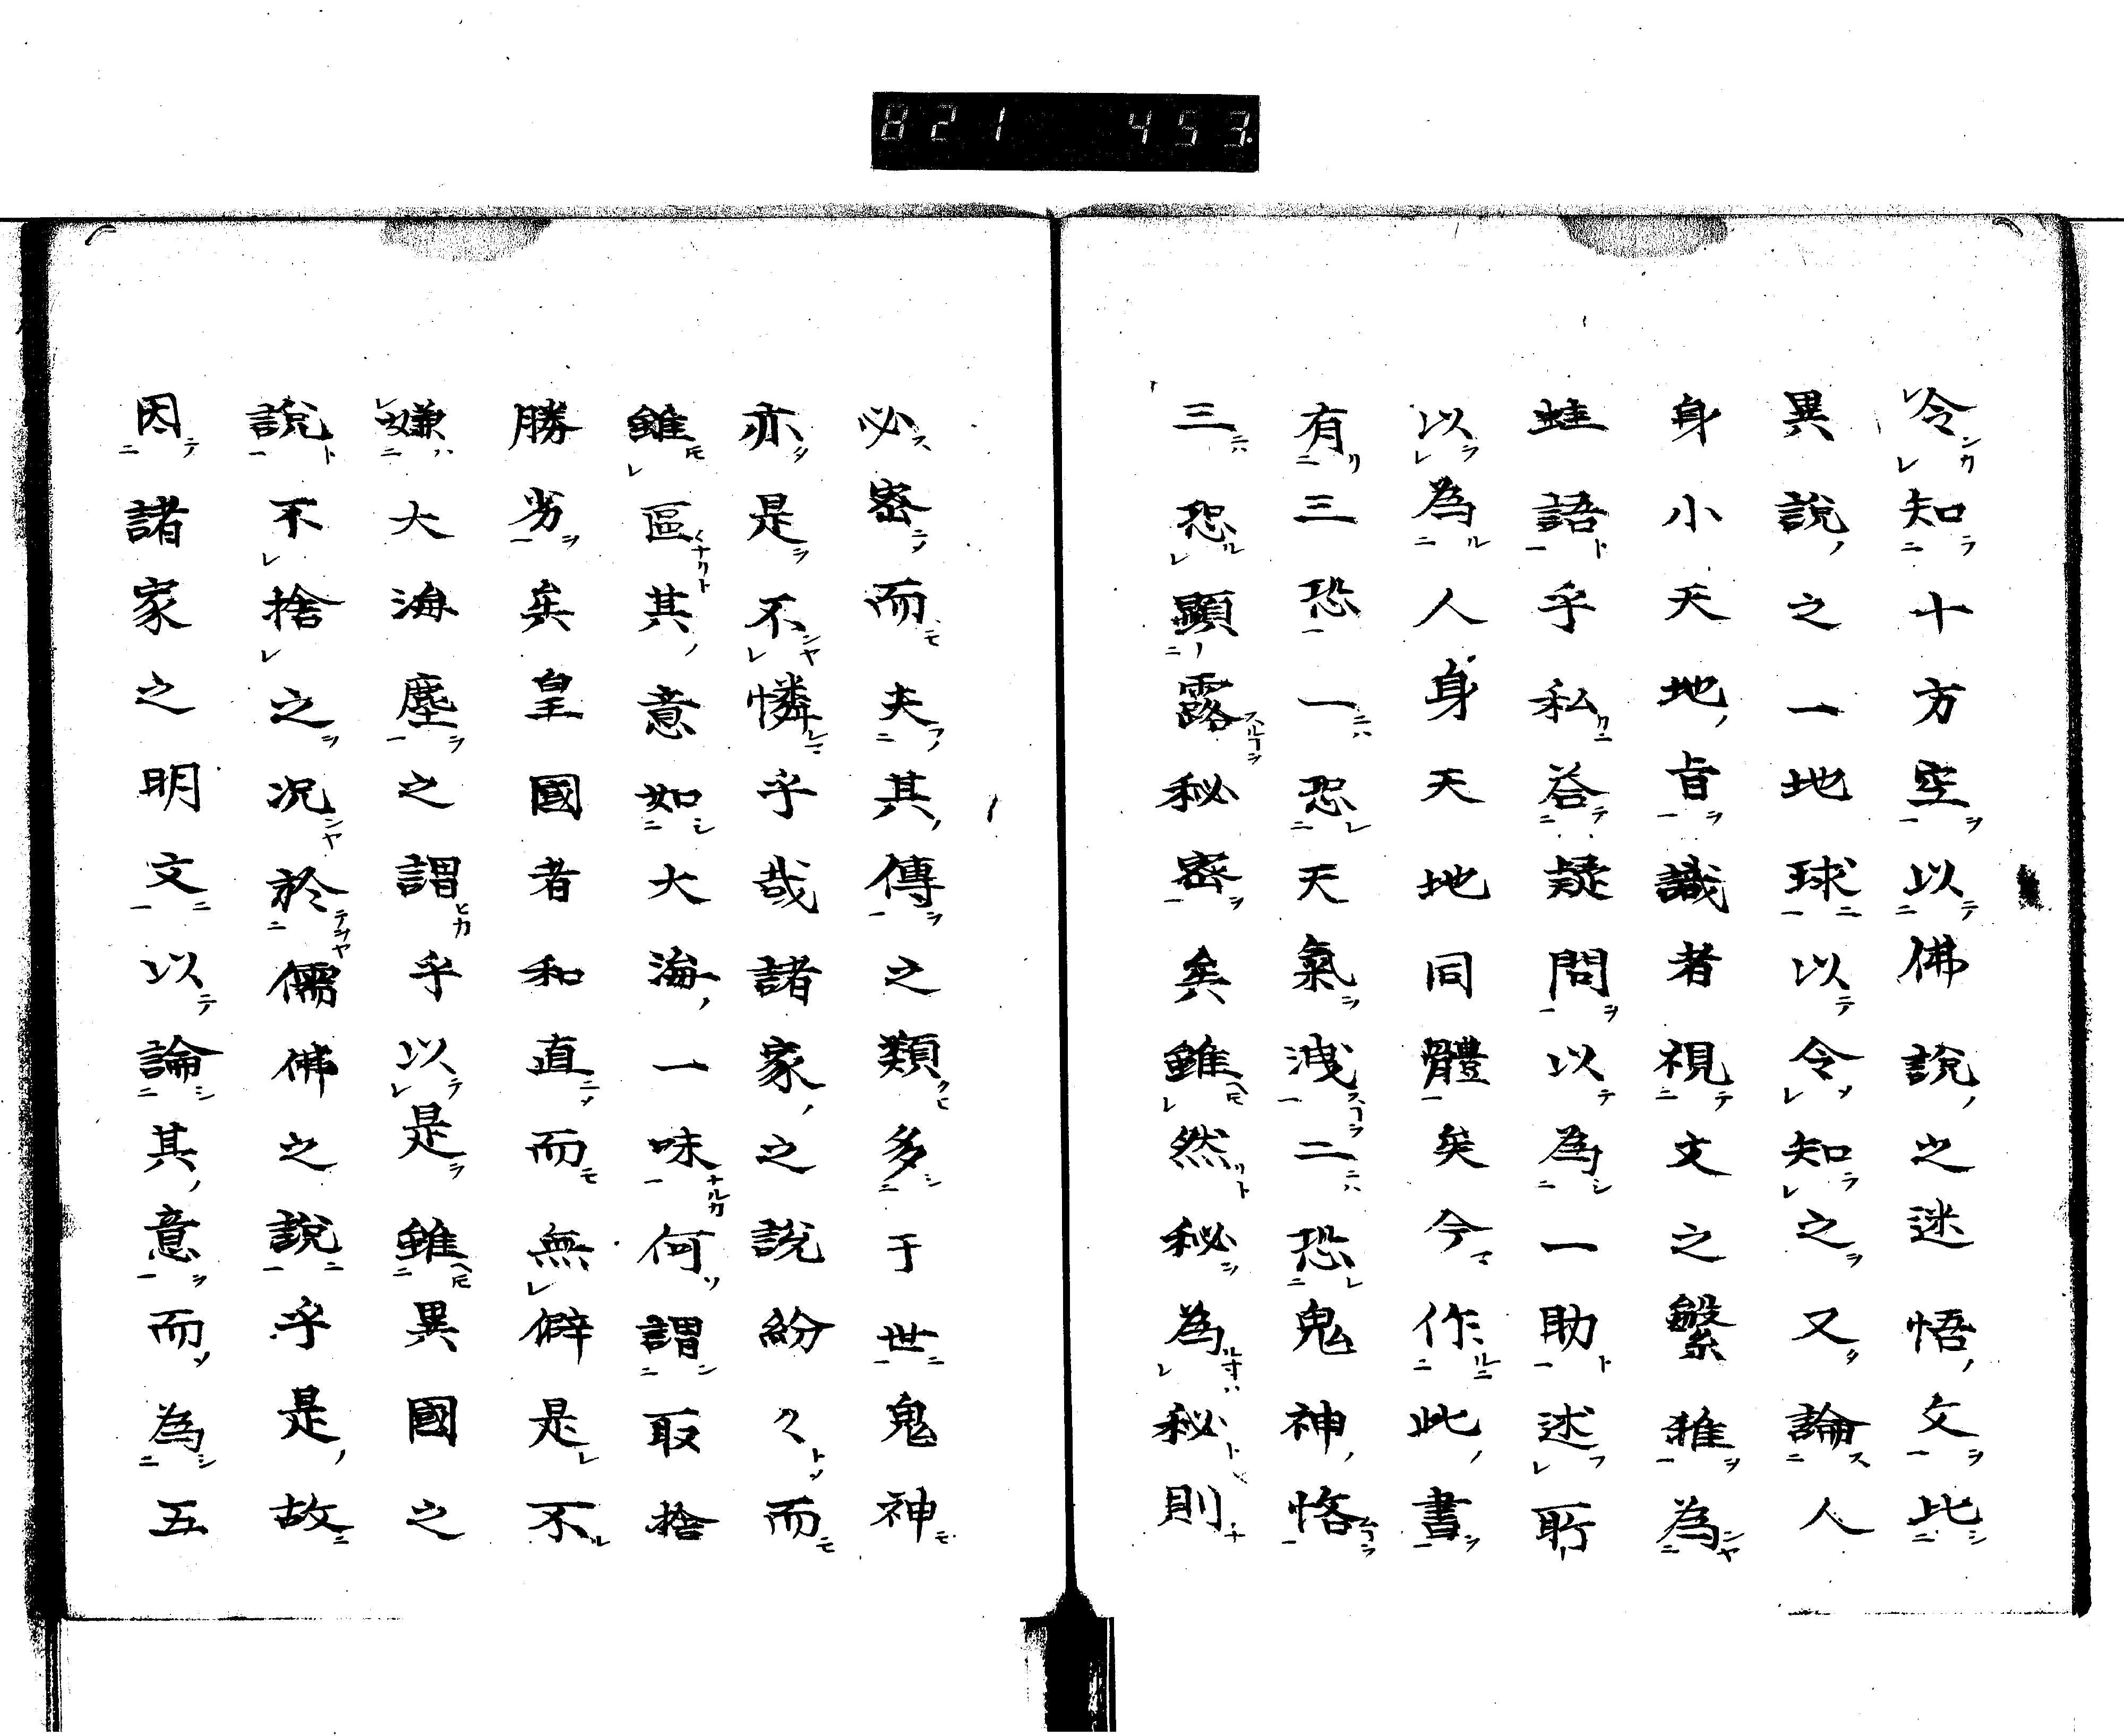 821 453.
令知十方空以佛說之迷悟文此
異說之一地球以令知之又論人
身小天地旨識者視文之繁雜為
蛙語乎私答疑問以為一助述所
以為人身天地同體矣今作此書
有三恐一恐天氣洩二恐鬼神悋
三恐顯露秘密矣雖然秘為秘則
必密而夫其傳之類多于世鬼神
亦是不憐乎哉諸家之說紛々而
雖區其意如大海一味何謂取捨
勝劣矣皇國者和直而無僻是不
嫌大海塵之謂乎以是雖異國之
說不捨之況於儒佛之說乎是故
因諸家之明文以論其意而為五